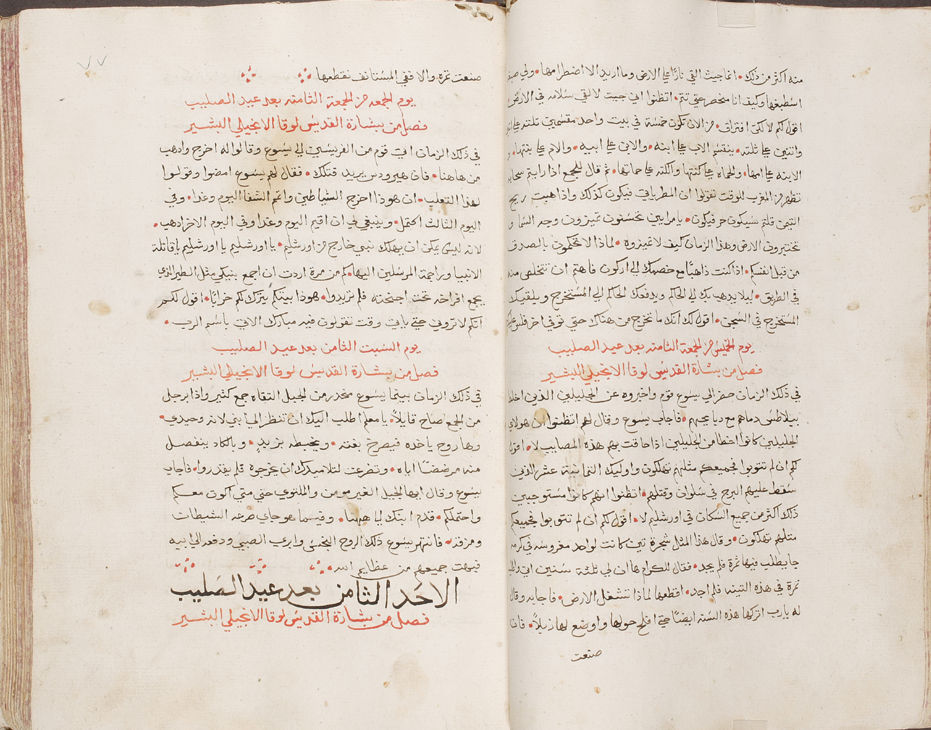 منه اكثر من ذلك • انما جيت القي نارًا علي الارض وما اريد الا اضطرامها • ولي صبغة
اصطبغها وكيف انا منحصر حتي تتم • اتظنوا اني جيت لالقي سلامه في الارض
اقول لكم لا لكن افتراق • من الان تكون خمسة في بيت واحد مقسمين تلته علي اتنين
واتنين علي تلته • ينقسم الاب علي ابنه • والابن علي ابيه • والام علي بنتها •
الابنه علي امها • والحماه علي كنتها والكنه علي حماتها • ثم قال للجمع اذا رايتم سحابه
تظهر من المغرب للوقت تقولوا ان المطر ياتي فيكون كذلك • واذا هبت ريح
التيمن قلتم سيكون حر فيكون • يا مرايين تحسنون تميزون وجه السما و
تختبرون الارض وهذا الزمان كيف لا تميزوه • لماذا لا تحكمون بالصدق
من قبل انفسكم • اذا كنت ذاهبًا مع خصمك الي اركون فاهتم ان تتخلص منه
في الطريق • ليلا يدهب بك الي الحاكم ويدفعك الحاكم الي المستخرج ويلقيك
المستخرج في السجن • اقول لك انك ما تخرج من هناك حتي توفي اخر فلس عليك
يوم الخميس من الجمعة الثامنه بعد عيد الصليب
فصل من بشارة القديس لوقا الانجيلي البشير
في ذلك الزمان حضر الي يسوع قوم واخبروه عن الجليليين الذين اخلط
بيلاطس دماهم مع دبايحهم • فاجاب يسوع وقال لهم اتظنوا ان هولاي
الجليليين كانوا اخطا من الجليليين اذ احاقت بهم هذه المصايب لا • اقول
لكم ان لم تتوبوا فجميعكم متلهم تهلكون • واوليك التمانية عشر الذين
سقط عليهم البرج في سلوان وقتلهم • اتظنوا انهم كانوا مستوجبين
ذلك اكثر من جميع السكان في اورشليم لا • اقول لكم ان لم تتوبوا فجميعكم
متلهم تهلكون • وقال هذا المثل شجرة تين كانت لواحد مغروسه في كرمه
جا يطلب فيها ثمرة فلم يجد • فقال للكرام ها ان لي تلاتة سنين اتي واطلب
ثمرة في هذه التينه فلم اجد • اقطعها لماذا تشغل الارض • فاجابه وقال
له يا رب اتركها هذه السنه ايضًا حتي افلح حولها واوضع لها زبلاً • فاذا
صنعت
صنعت ثمرة والا ففي المستانف نقطعها
يوم الجمعه من الجمعة الثامنه بعد عيد الصليب
فصل من بشارة القديس لوقا الانجيلي البشير
في ذلك الزمان اتي قوم من الفريسيين الي يسوع وقالوا له اخرج وادهب
من هاهنا • فان هيرودس يريد قتلك • فقال لهم يسوع امضوا وقولوا
لهذا التعلب • ان هوذا اخرج الشياطين واتمم الشفا اليوم وغدا • وفي
اليوم الثالث اكتمل • وينبغي لي ان اقيم اليوم وغدا وفي اليوم الاخر ادهب •
لانه ليس يمكن ان يهلك نبي خارج من اورشليم • يا اورشليم يا اورشليم يا قاتلة
الانبيا وراجمة المرسلين اليها • كم من مرة اردت ان اجمع بنيكي مثل الطير الذي
يجمع افراخه تحت اجنحته فلم تريدوا • هوذا بيتكم يترك لكم خرابًا • اقول لكم
انكم لا تروني حتي ياتي وقت تقولون فيه مبارك الاتي باسم الرب •
يوم السبت الثامن بعد عيد الصليب
فصل من بشارة القديس لوقا الانجيلي البشير
في ذلك الزمان بينما يسوع منحدر من الجبل التقاه جمع كثير واذا برجل
من الجمع صاح قايلاً • يا معلم اطلب اليك ان تنظر الي ابني لانه وحيدي •
وها روح ياخذه فيصرخ بغته • ويخبطه بزبد • وبالكاد ينفصل
منه مرضضًا اياه • وتضرعت لتلاميدك ان يخرجوه فلم يقدروا • فاجاب
يسوع وقال ايها الجيل الغير مومن والملتوي حتي متي اكون معكم
واحتملكم • قدم ابنك الي هاهنا • وفيما هو جاي طرحه الشيطان
ومزقه • فانتهر يسوع ذلك الروح النجس وابرى الصبي ودفعه الي ابيه
فبهت جميعهم من عظايم الله
الاحد الثامن بعد عيد الصليب
فصل من بشارة القديس لوقا الانجيلي البشير